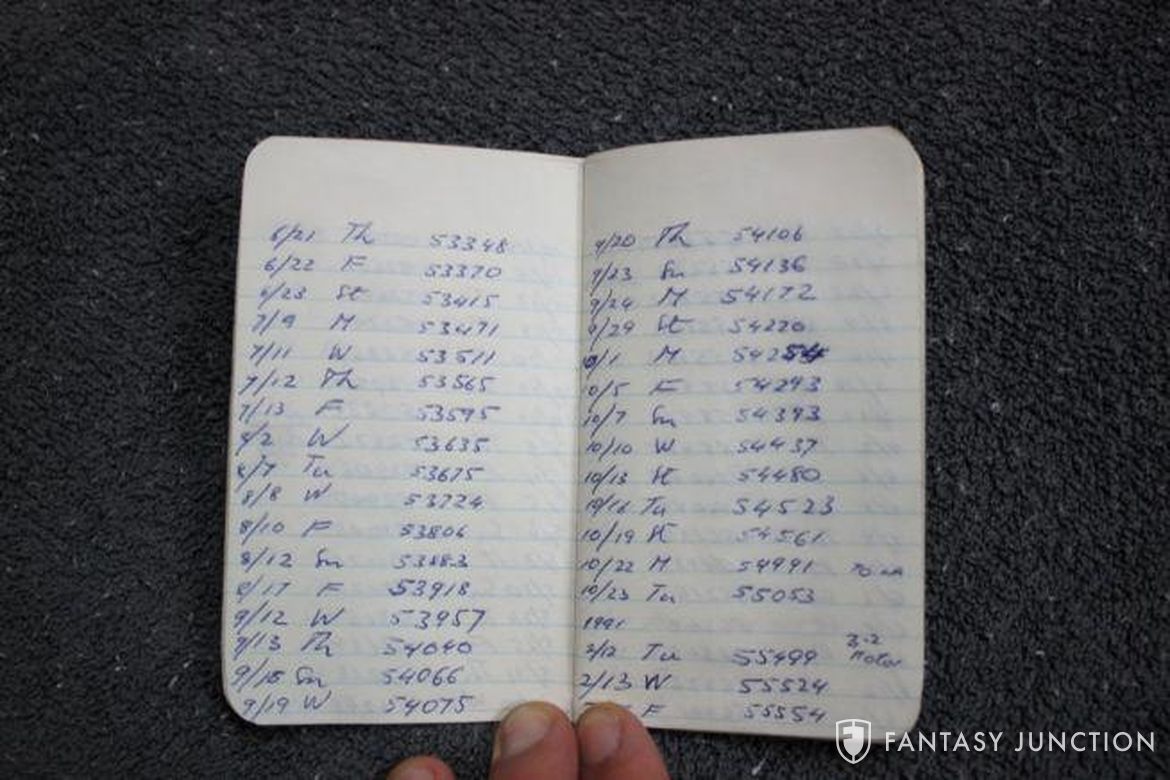 6/21 Th 53348
6/22 F 53370
6/23 St 53415
7/9 M 53471
7/11 W 53511
7/12 Th 53565
7/13 F 53595
W 53635
8/7 Tu 53675
8/8 W 53724
8/10 F 53806
8/12 Sn 53883
8/17 F 53918
9/12 W 53957
9/13 Th 54040
Sn 54066
9/19 W 54075
9/20 Th 54106
9/23 Sn 54136
9/24 M 54172
9/29 St 54220
10/1 M 54254
10/5 F 54293
10/7 Sn 54393
10/10 W 54437
10/13 St 54480
10/16 Tu 54523
10/19 St 54561
10/22 M 54991 TO
10/23 Tu 55053
1991
2/12 Tu 55499 3.2 Motor
2/13 W 55524
F 55554
FANTASY JUNCTION